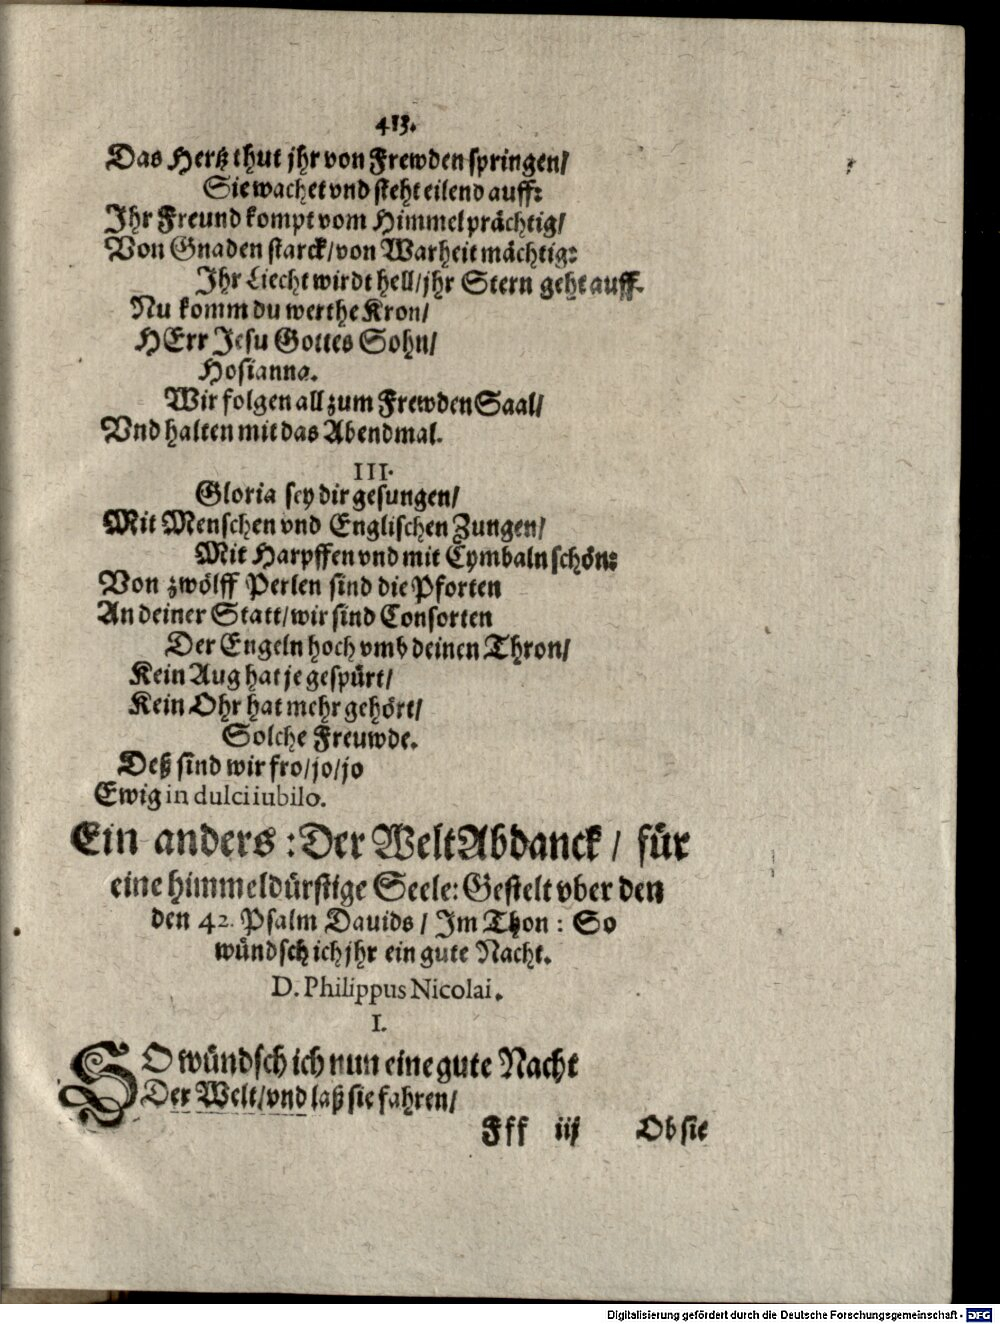 413.
Das Hertz thut jhr von Frewden springen/
Sie wachet vnd steht eilend auff:
Ihr Freund kompt vom Himmel prächtig/
Von Gnaden starck/von Warheit mächtig:
Ihr Liecht wirdt hell/jhr Stern geht auff.
Nu komm du werthe Kron/
HErr Jesu Gottes Sohn/
Hosianna.
Wir folgen all zum Frewden Saal/
Vnd halten mit das Abendmal.
III.
Gloria sey dir gesungen/
Mit Menschen vnd Englischen Zungen/
Mit Harpffen vnd mit Cymbaln schön:
Von zwölff Perlen sind die Pforten
An deiner Statt/wir sind Consorten
Der Engeln hoch vmb deinen Thron/
Kein Aug hat je gespürt/
Kein Ohr hat mehr gehört/
Solche Freuwde.
Deß sind wir fro/jo/jo
Ewig in dulci iubilo.
Ein anders : Der Welt Abdanck / für
eine himmeldürstige Seele: Gestelt vber den
den 42. Psalm Dauids / Im Thon : So
wündsch ich jhr ein gute Nacht.
D. Philippus Nicolai.
I.
SO wündsch ich nun eine gute Nacht
Der Welt/vnd laß sie fahren/
Fff iij Ob sie
Digitalisierung gefördert durch die Deutsche Forschungsgemeinschaft - DFG